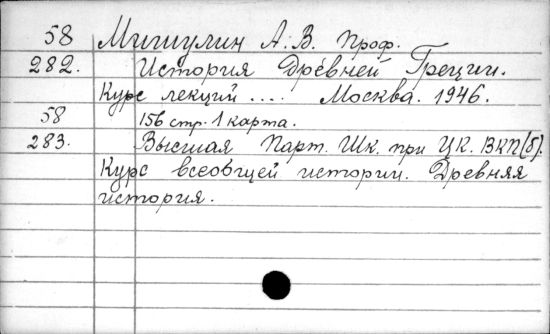 58 Мишулин А. В. Проф.
282. История Древней Греции.
Курс лекций .... Москва. 1946.
58 156 стр. 1 карта.
283. Высшая Парт. Шк. при ЦК. ВКП(б).
Курс всеобщей истории. Древняя
история.